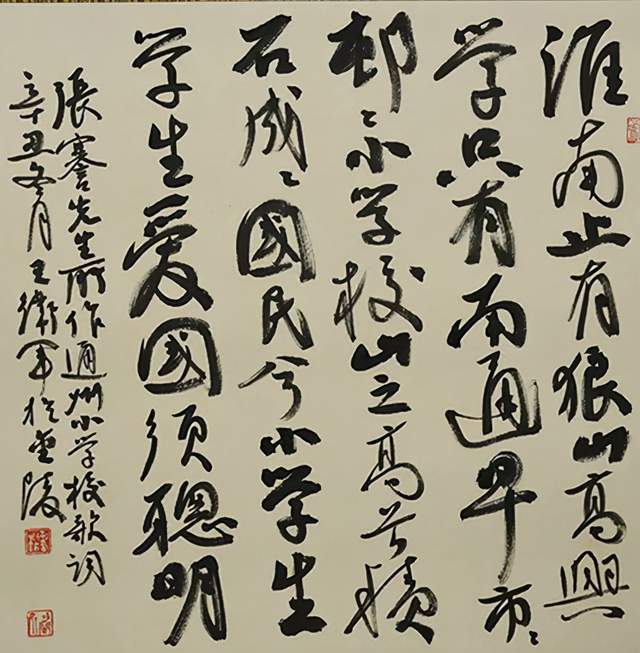 淮南止有狼山高興
学只有南通早市〻
邨〻小学校山之高兮積
石成〻國民兮小学生
学生愛國須聰明
張謇先生所作通州小学校歌词
辛丑冬月王衛军於金陵